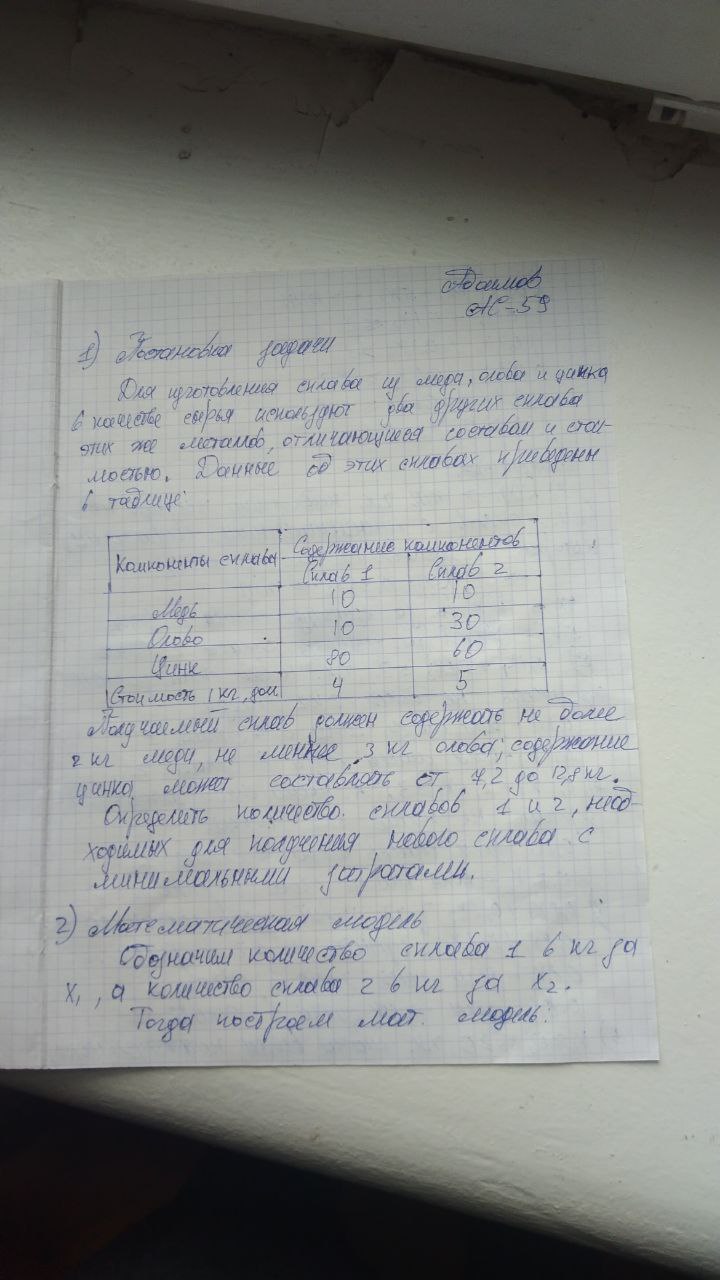 Адамов
АС-59
1) Постановка задачи
Для изготовления сплава из меди, олова и цинка
в качестве сырья используют два других сплава
этих же металлов, отличающиеся составом и стои-
мостью. Данные об этих сплавах приведены
в таблице:
Компоненты сплава Содержание компонентов
Сплав 1 Сплав 2
Медь 10 10
Олово 10 30
Цинк 80 60
Стоимость 1 кг, дол. 4 5
Получаемый сплав должен содержать не более
2 кг меди, не менее 3 кг олова; содержание
цинка может составлять от 7,2 до 12,8 кг.
Определить количество сплавов 1 и 2, необ-
ходимых для получения нового сплава с
минимальными затратами.
2) Математическая модель
Обозначим количество сплава 1 в кг за
x₁, а количество сплава 2 в кг за x₂.
Тогда построем мат. модель: